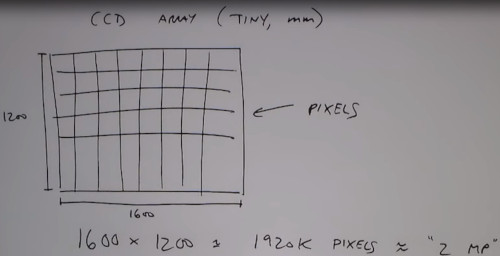 CCD ARRAY (TINY, mm)
1200
PIXELS
1600
1600 × 1200 = 1920K PIXELS ≈ "2 MP"